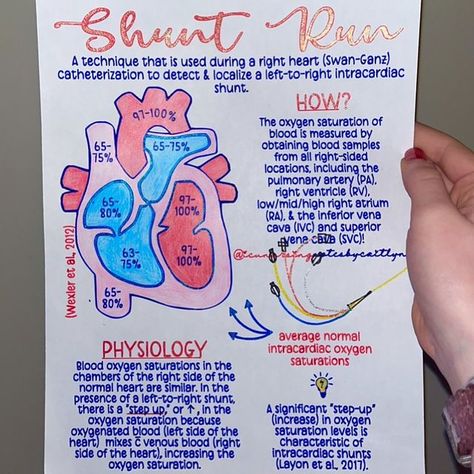 Shunt Run
A technique that is used during a right heart (Swan-Ganz)
catheterization to detect & localize a left-to-right intracardiac
shunt.
97-100%
65-
75%
65-75%
65-
80%
97-
100%
63-
75%
97-
100%
65-
80%
(Wexler et al., 2012)
HOW?
The oxygen saturation of
blood is measured by
obtaining blood samples
from all right-sided
locations, including the
pulmonary artery (PA),
right ventricle (RV),
low/mid/high right atrium
(RA), & the inferior vena
cava (IVC) and superior
vena cava (SVC)!
average normal
intracardiac oxygen
saturations
PHYSIOLOGY
Blood oxygen saturations in the
chambers of the right side of the
normal heart are similar. In the
presence of a left-to-right shunt,
there is a "step up," or ↑, in the
oxygen saturation because
oxygenated blood (left side of the
heart) mixes c̄ venous blood (right
side of the heart), increasing the
oxygen saturation.
A significant "step-up"
(increase) in oxygen
saturation levels is
characteristic of
intracardiac shunts
(Layon et al., 2017).